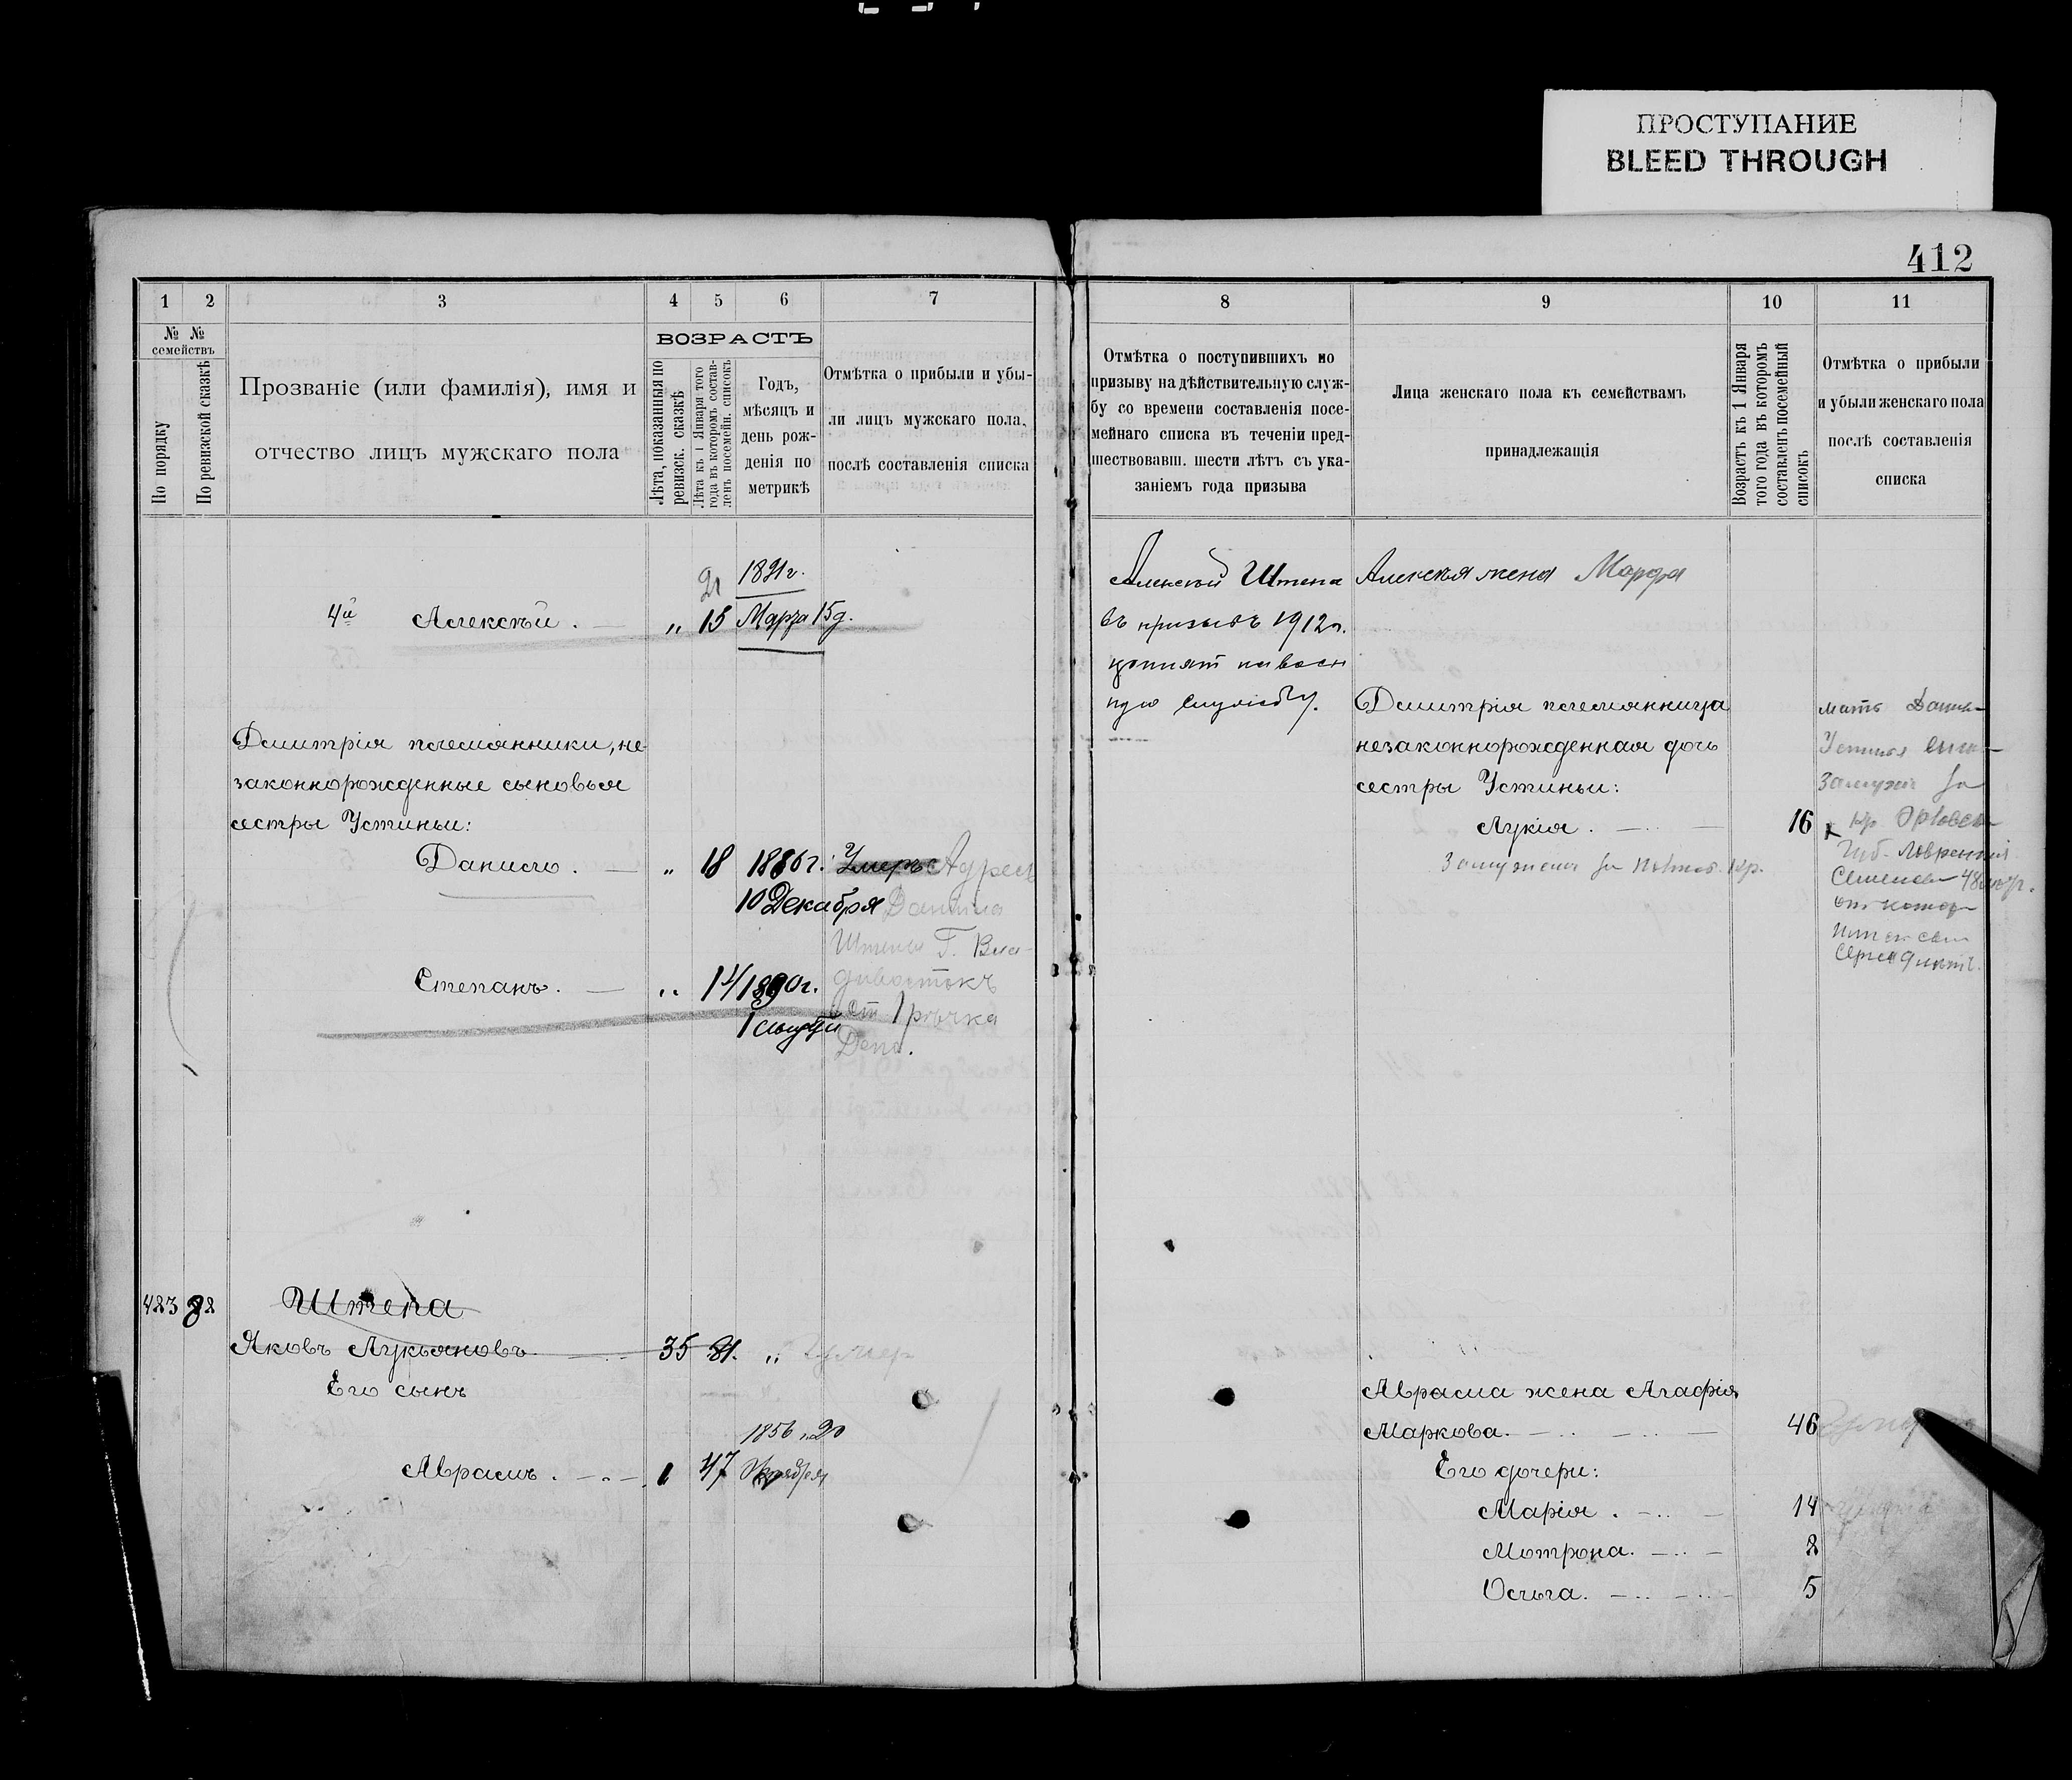 ПРОСТУПАНИЕ
BLEED THROUGH
412
1 2 3 4 5 6 7
№ № семействъ
По порядку
По ревизской сказкѣ
Прозваніе (или фамилія), имя и
отчество лицъ мужскаго пола
ВОЗРАСТЪ
Лѣта, показанныя по
ревизск. сказкѣ
Лѣта къ 1 Января того
года въ которомъ состав-
ленъ посемейн. списокъ
Годъ,
мѣсяцъ и
день рож-
денія по
метрикѣ
Отмѣтка о прибыли и убы-
ли лицъ мужскаго пола,
послѣ составленія списка
21 1891г.
4й Алексѣй . — „ 13 Марта 15д.
Дмитрія племянники, не-
законнорожденные сыновья
сестры Устиньи:
Данило . — „ 18 1886г. Умеръ Адресъ
10 Декабря Данила
Штепы Г. Вла-
Степанъ . — „ 14 1890г. дивостокъ
ст 1 рѣчка
Депо.
423 82 Штепа
Яковъ Лукьяновъ 35 81. „ умер
Его сынъ
1856 . 20
Аврамъ . — 1 47 Октября
8 9 10 11
Отмѣтка о поступившихъ по
призыву на дѣйствительную служ-
бу со времени составленія посе-
мейнаго списка въ теченіи пред-
шествовавш. шести лѣтъ съ ука-
заніемъ года призыва
Лица женскаго пола къ семействамъ
принадлежащія
Возрастъ къ 1 Января
того года въ которомъ
составленъ посемейный
списокъ
Отмѣтка о прибыли
и убыли женскаго пола
послѣ составленія
списка
Алексѣй Штепа
въ призывъ 1912г.
принят на воен
ную службу.
Алексѣя жена Марфа
Дмитрія племянница
незаконнорожденная дочь
сестры Устиньи:
Лукія . — 16
Замужем за
мать Данила
Устинья
Замужем за
кр Орловск
Губ. Лаврентія
Семенов
Аврама жена Агафія
Маркова. — 46
Его дочери:
Марія . — 14
Мотрона. — 8
Ольга. — 5